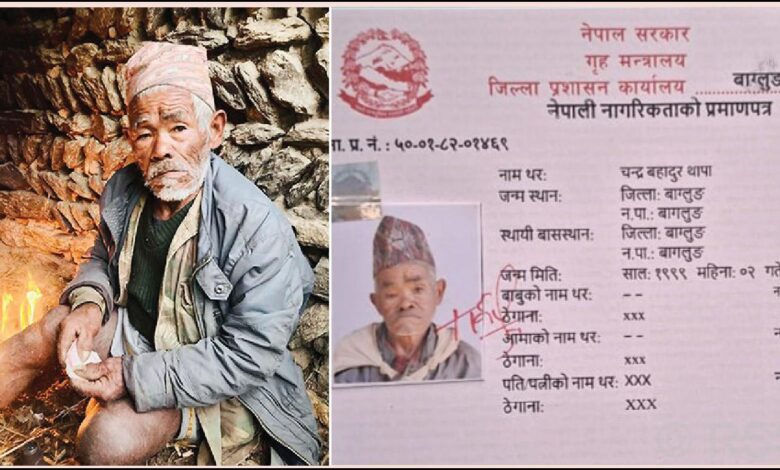 नेपाल सरकार
गृह मन्त्रालय
जिल्ला प्रशासन कार्यालय बाग्लुङ
नेपाली नागरिकताको प्रमाणपत्र
ना. प्र. नं. : ५०-०१-८२-०१४६९
नाम थर: चन्द्र बहादुर थापा
जन्म स्थान: जिल्ला: बाग्लुङ
न.पा.: बागलुङ
स्थायी बासस्थान: जिल्ला: बाग्लुङ
न.पा.: बागलुङ
जन्म मिति: साल: १९९९ महिना: ०२ गते
बाबुको नाम थर: --
ठेगाना: xxx
आमाको नाम थर: --
ठेगाना: xxx
पति/पत्नीको नाम थर: XXX
ठेगाना: XXX